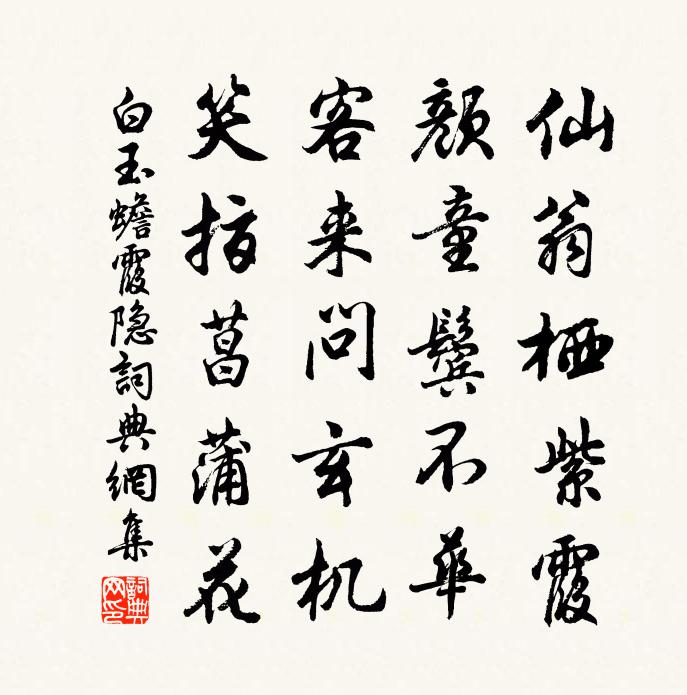 仙翁栖紫霞
颜童鬓不华
客来问玄机
笑指菖蒲花
白玉蟾霞隐詞典網集
詞典網印